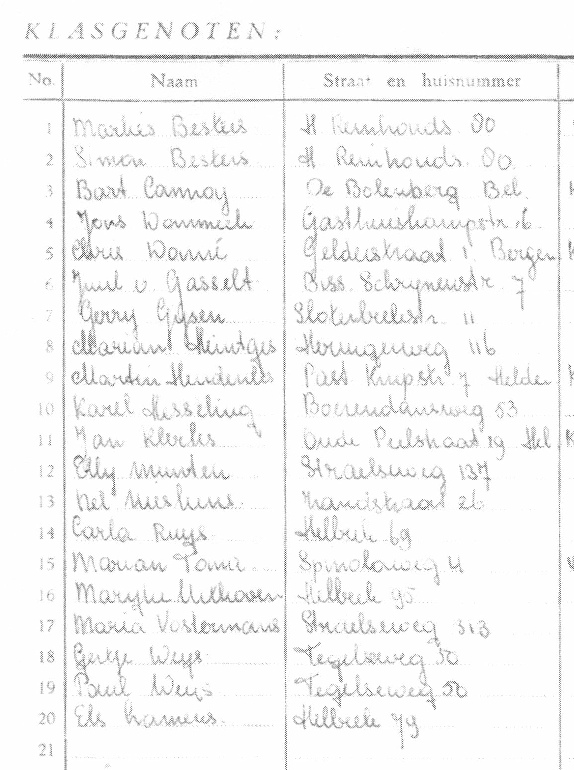 KLASGENOTEN:
No. Naam Straat en huisnummer
1 Marlies Besters H Reinhouds 80
2 Simon Besters H Reinhouds 80
3 Bart Cannoy De Bolenberg Bel.
4 Jons Dommeck Gasthuiskampstr. 6
5 Chris Donné Gelderstraat 1 Bergen
6 Juul v. Gasselt Biss. Schrynenstr 7
7 Gerry Gijsen Slotenbrekstr. 11
8 Marian Heintges Herungerweg 116
9 Martin Hendenks Past Knipstr. 7 Helden
10 Karel Hesseling Boerendansweg 53
11 Jan Klerks Oude Peelstraat 19 Hel.
12 Elly Munten Straelseweg 137
13 Nel Niskens. 26
14 Carla Ruys Helbeek 69
15 Marian Spinolaweg 4
16 Uithoven Helbeek 95
17 Maria Vostermans Straelseweg 313
18 Geetje Weys Tegelseweg 50
19 Paul Weys Tegelseweg 50
20 Els Helbeek 79
21